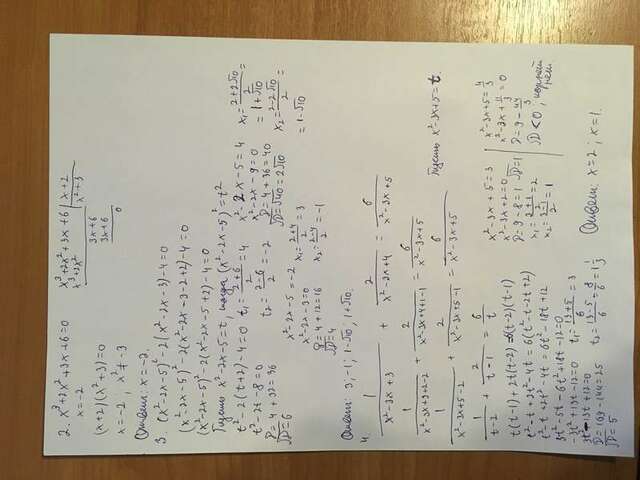 2. x³+2x²+3x+6=0
x=-2
x³+2x²+3x+6 | x+2
x³+2x² | x²+3
3x+6
3x+6
0
(x+2)(x²+3)=0
x=-2, x²≠-3
Ответ: x=-2.
3 (x²-2x-5)²-2(x²-2x-3)-4=0
(x²-2x-5)²-2(x²-2x-3-2+2)-4=0
(x²-2x-5)²-2(x²-2x-5+2)-4=0
Пусть x²-2x-5=t, тогда (x²-2x-5)²=t²
t²-2(t+2)-4=0
t²-2t-8=0
D=4+32=36
√D=6
t₁=2+6/2=4
t₂=2-6/2=-2
x²-2x-5=-2
x²-2x-3=0
D=4+12=16
√D=4
x₁=2+4/2=3
x₂=2-4/2=-1
x²-2x-5=4
x²-2x-9=0
D=4+36=40
√D=√40=2√10
x₁=2+2√10/2=
=1+√10
x₂=2-2√10/2=
=1-√10
Ответ: 3, -1; 1-√10, 1+√10.
4. 1/x²-3x+3 + 2/x²-3x+4 = 6/x²-3x+5
1/x²-3x+3+2-2 + 2/x²-3x+4+1-1 = 6/x²-3x+5
1/x²-3x+5-2 + 2/x²-3x+5-1 = 6/x²-3x+5
Пусть x²-3x+5=t.
1/t-2 + 2/t-1 = 6/t
t(t-1)+2t(t-2)=6(t-2)(t-1)
t²-t+2t²-4t=6(t²-t-2t+2)
t²-t+2t²-4t=6t²-18t+12
3t²-5t-6t²+18t-12=0
-3t²+13t-12=0
3t²-13t+12=0
D=169-144=25
√D=5
t₁=13+5/6=3
t₂=13-5/6=8/6=1 1/3
x²-3x+5=3
x²-3x+2=0
D=9-8=1 √D=1
x₁=3+1/2=2
x₂=3-1/2=1
x²-3x+5=4/3
x²-3x+11/3=0
D=9-44/3
√D<0, корней
нет
Ответ: x=2; x=1.